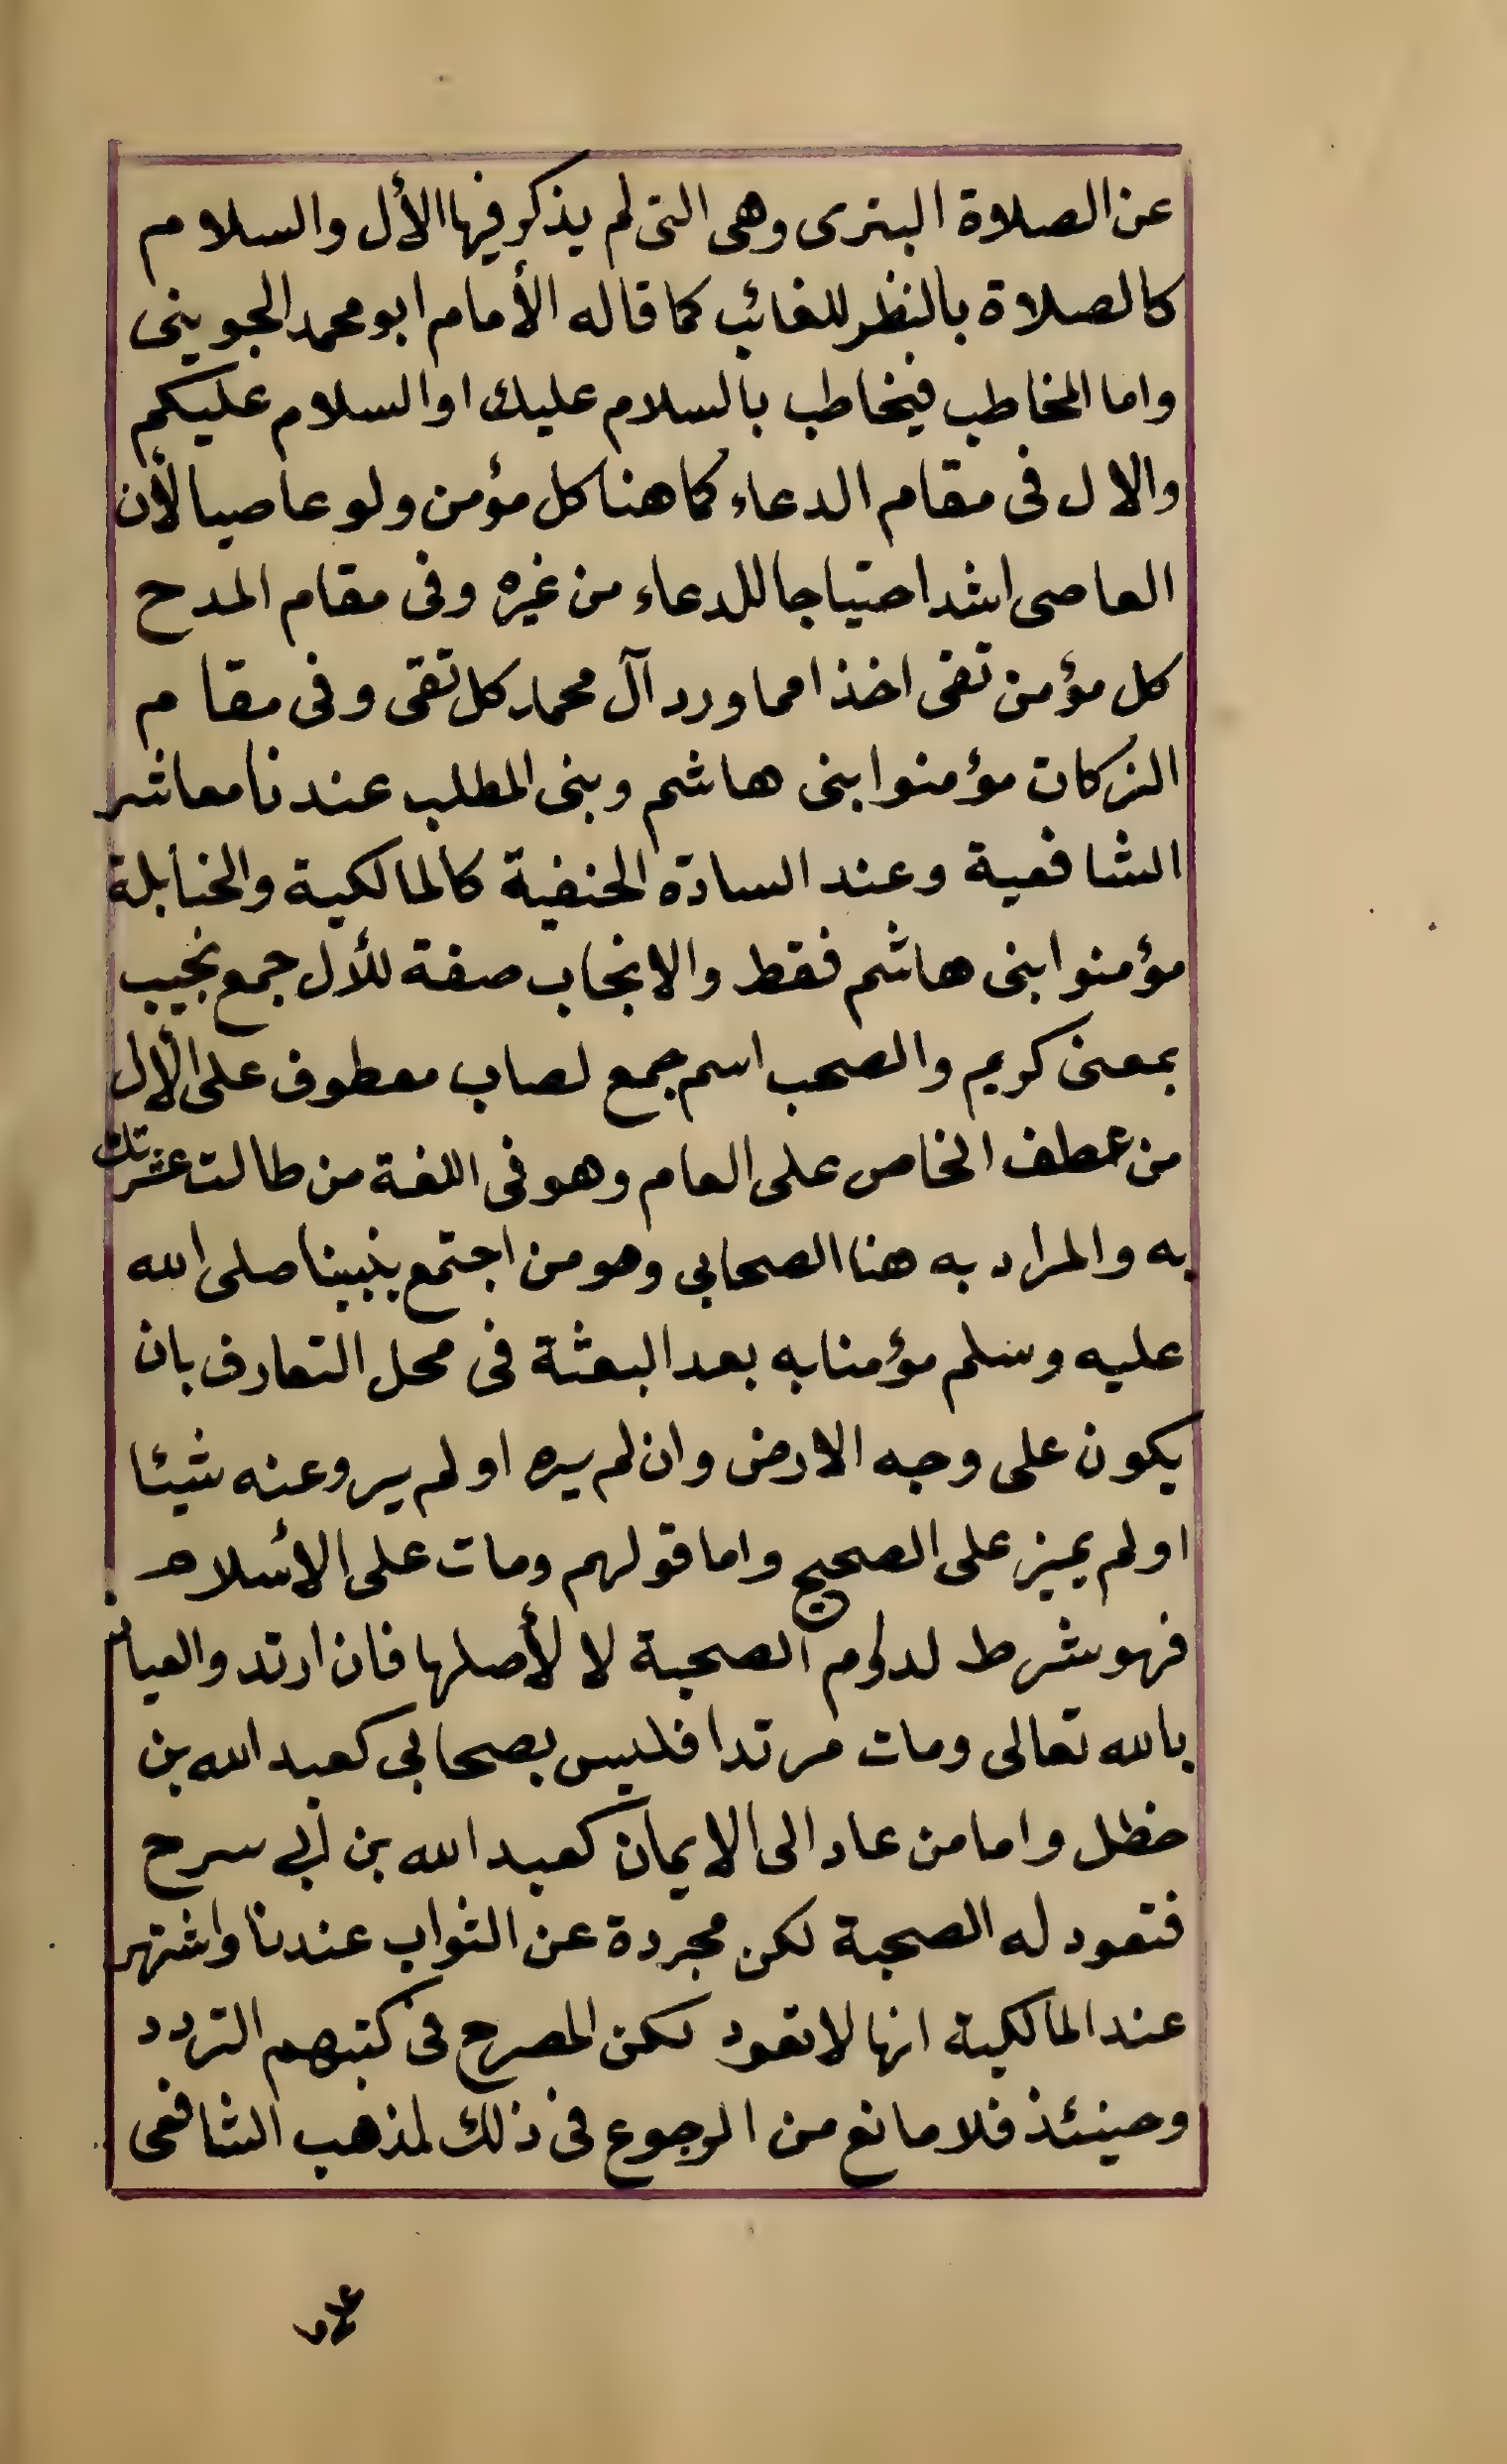 عن الصلاة البترى وهى التى لم يذكر فيها الأل والسلام
كالصلاة بالنظر للغائب كما قاله الأمام ابو محمد الجوينى
واما المخاطب فيخاطب بالسلام عليك او السلام عليكم
والال فى مقام الدعاء كما هنا كل مؤمن ولو عاصيا لأن
العاصى اشد احتياجا للدعاء من غيره وفى مقام المدح
كل مؤمن تقى اخذا مما ورد آل محمد كل تقى وفى مقام
الزكات مؤمنوا بنى هاشم وبنى المطلب عندنا معاشر
الشافعية وعند السادة الحنفية كالمالكية والحنابلة
مؤمنوا بنى هاشم فقط والانجاب صفة للأل جمع نجيب
بمعنى كريم والصحب اسم جمع لصاب معطوف على الأل
من عطف الخاص على العام وهو فى اللغة من طالت عشرتك
به والمراد به هنا الصحابى وهو من اجتمع بنبينا صلى الله
عليه وسلم مؤمنا به بعد البعثة فى محل التعارف بان
يكون على وجه الارض وان لم يره او لم يرو عنه شيئا
او لم يميز على الصحيح واما قولهم ومات على الأسلام
فهو شرط لدوام الصحبة لا لأصلها فان ارتد والعياذ
بالله تعالى ومات مرتدا فليس بصحابى كعبد الله بن
خطل واما من عاد الى الايمان كعبد الله بن أبى سرح
فتعود له الصحبة لكن مجردة عن الثواب عندنا واشتهر
عند المالكية انها لا تعود لكن المصرح فى كتبهم التردد
وحينئذ فلا مانع من الرجوع فى ذلك لمذهب الشافعى